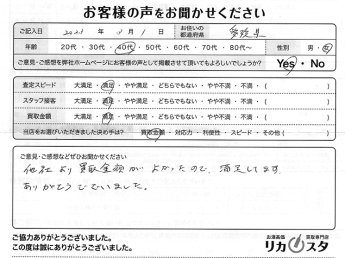 お客様の声をお聞かせください
ご記入日 年 月 1 日 お住いの都道府県
年齢 20代 ・ 30代 ・ 40代 ・ 50代 ・ 60代 ・ 70代 ・ 80代〜 性別 男 ・ 女
ご意見・ご感想を弊社ホームページにお客様の声として掲載させて頂いてもよろしいでしょうか? Yes ・ No
査定スピード 大満足 ・ 満足 ・ やや満足 ・ どちらでもない ・ やや不満 ・ 不満 ・ ( )
スタッフ接客 大満足 ・ 満足 ・ やや満足 ・ どちらでもない ・ やや不満 ・ 不満 ・ ( )
買取金額 大満足 ・ 満足 ・ やや満足 ・ どちらでもない ・ やや不満 ・ 不満 ・ ( )
当店をお選びいただきました決め手は? 買取金額 ・ 対応力 ・ 利便性 ・ スピード ・ その他 ( )
ご意見・ご感想などぜひお聞かせください
他社より買取金額がよかったので、満足してます
ありがとうございました。
ご協力ありがとうございました。
この度は誠にありがとうございました。
お酒高価 買取専門店
リカスタ